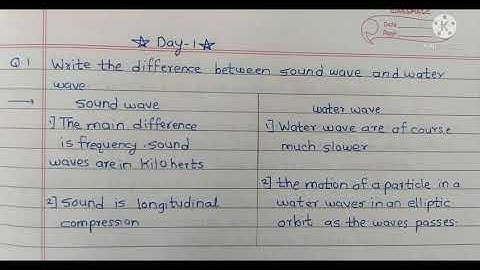 ☆ Day-1☆
Date
Page
K
Q.1 Write the difference between sound wave and water
wave
→ sound wave
1] The main difference
is frequency. sound
waves are in Kiloherts
2] Sound is longitudinal
compression
water wave
1] Water wave are of course
much slower
2] the motion of a particle in a
water waves in an elliptic
orbit as the waves passes.